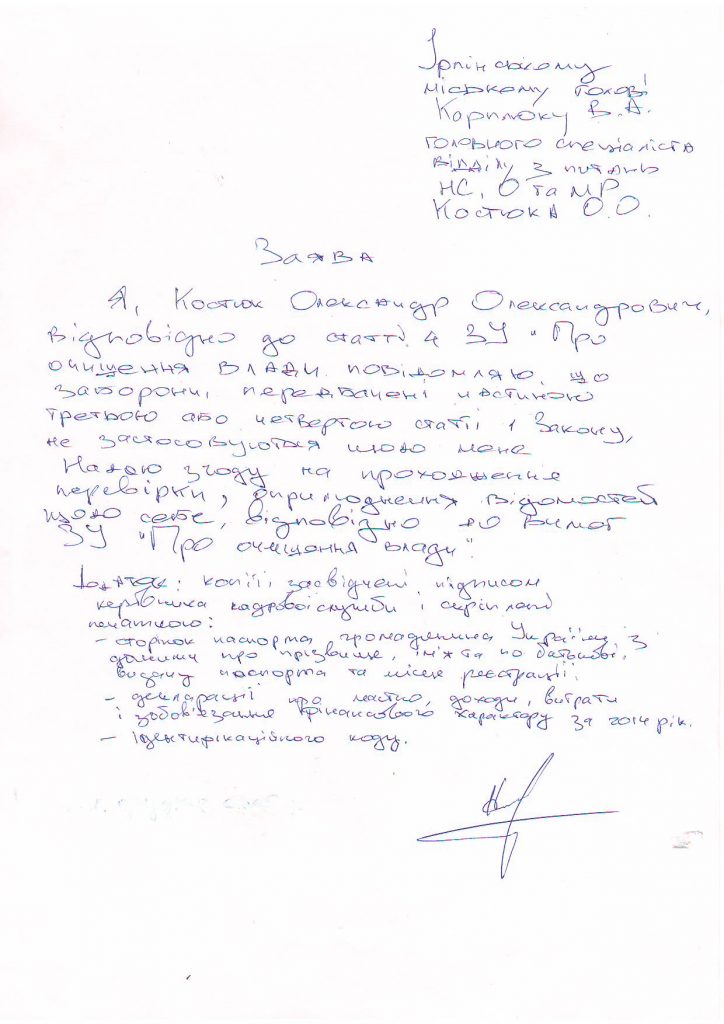 Ірпінському
міському голові
Карплюку В.А.
головного спеціаліста
відділу з питань
НС, О та МР
Костюка О.О.
Заява
Я, Костюк Олександр Олександрович,
відповідно до статті 4 ЗУ "Про
очищення влади повідомляю, що
заборони, передбачені частиною
третьою або четвертою статті 1 Закону,
не застосовуються щодо мене
Надаю згоду на проходження
перевірки, оприлюднення відомостей
щодо себе, відповідно до вимог
ЗУ "Про очищення влади".
Додаток: копії, засвідчені підписом
керівника кадрової служби і скріплені
печаткою:
- сторінок паспорта громадянина України з
даними про прізвище, ім'я та по батькові,
видачу паспорта та місце реєстрації.
- декларації про майно, доходи, витрати
і зобов'язання фінансового характеру за 2014 рік.
- ідентифікаційного коду.